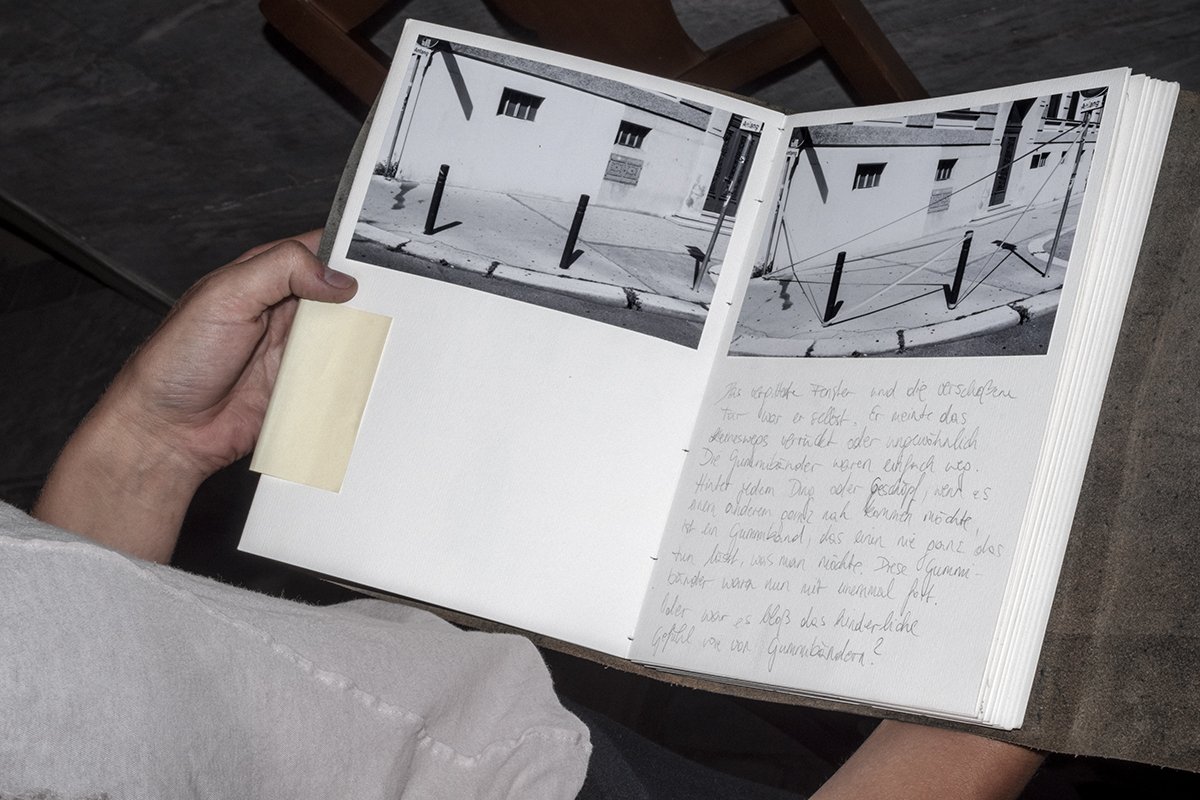 Anfang
Anfang
Anfang
Das vergitterte Fenster und die verschloßene
Tür war er selbst. Er meinte das
keineswegs verrückt oder ungewöhnlich
Die Gummibänder waren einfach weg.
Hinter jedem Ding oder Geschöpf, wenn es
einem anderem ganz nah kommen möchte,
ist ein Gummiband, das einen nie ganz das
tun lässt, was man möchte. Diese Gummi-
bänder waren nun mit einemmal fort.
Oder war es bloß das hinderliche
Gefühl wie von Gummibändern?